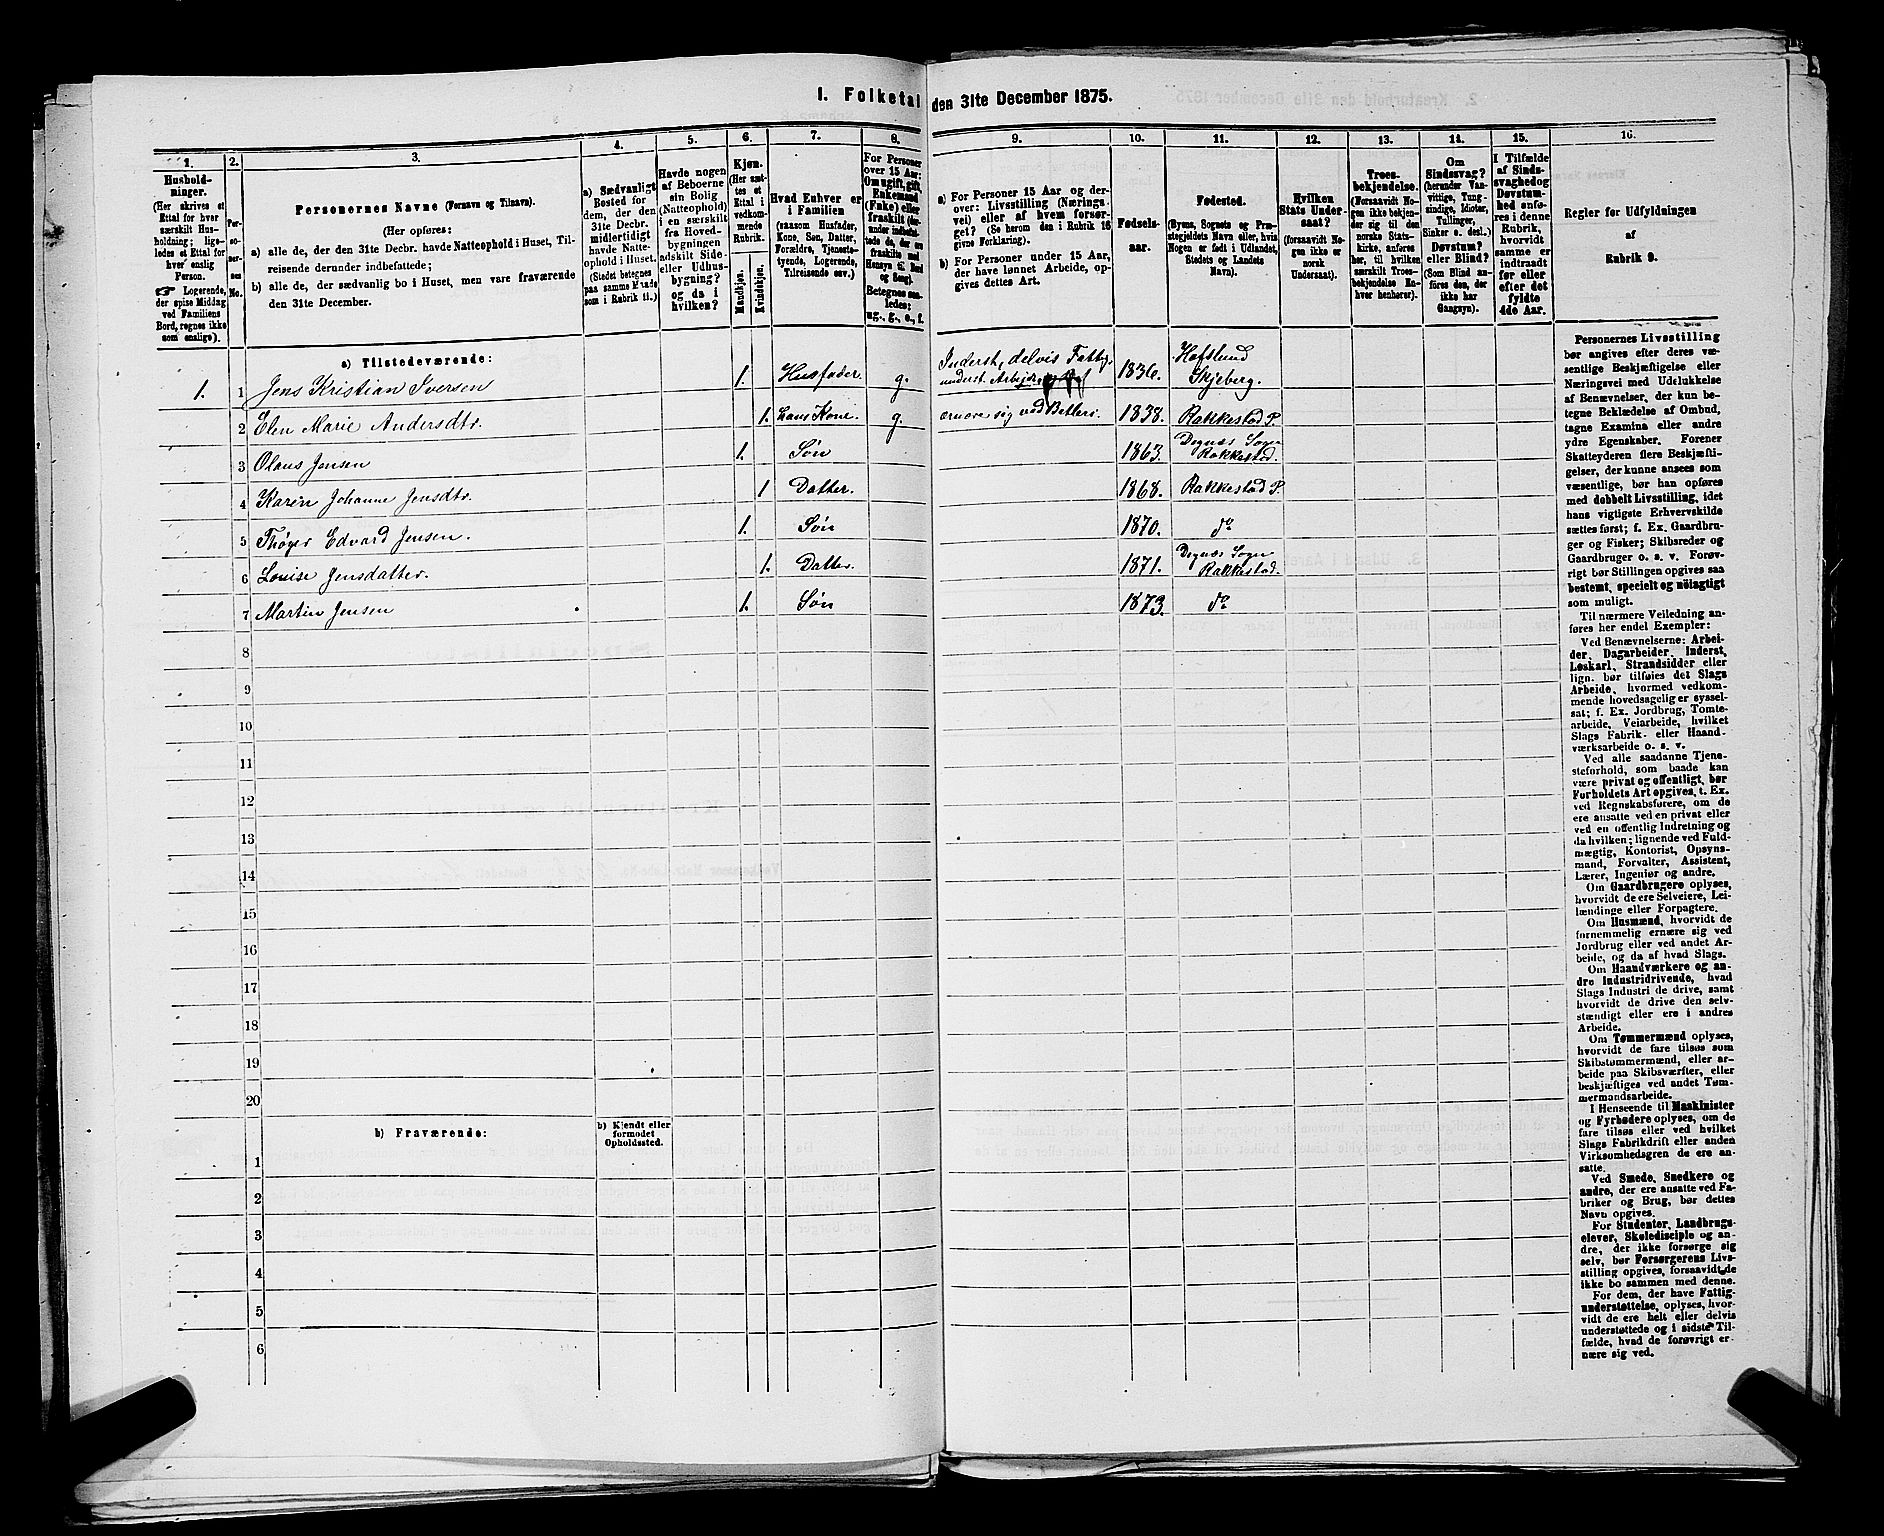 I. Folketal den 31te December 1875.
1. 2. 3. 4. 5. 6. 7. 8. 9. 10. 11. 12. 13. 14. 15. 16.
Hushold-
ninger.
(Her skrives et
Ettal for hver
særskilt Hus-
holdning; lige-
ledes et Ettal for
hver enslig
Person.
☛ Logerende,
der spise Middag
ved Familiens
Bord, regnes ikke
som enslige).
Per-
so-
ner-
nes
No.
Personernes Navne (Fornavn og Tilnavn).
(Her opføres:
a) alle de, der den 31te Decbr. havde Natteophold i Huset, Til-
reisende derunder indbefattede;
b) alle de, der sædvanlig bo i Huset, men vare fraværende
den 31te December.
a) Sædvanligt
Bosted for
dem, der den
31te Decbr.
midlertidigt
havde Natte-
ophold i Huset.
(Stedet betegnes
paa samme Maade
som i Rubrik 11.)
Havde nogen
af Beboerne
sin Bolig
(Natteophold)
i en særskilt
fra Hoved-
bygningen
adskilt Side-
eller Udhus-
bygning?
og da i
hvilken?
Kjøn.
(Her sæt-
tes et
Ettal i
vedkom-
mende
Rubrik.
Mandkjøn.
Kvindekjøn.
Hvad Enhver er
i Familien
(saasom Husfader,
Kone, Søn, Datter,
Forældre, Tjeneste-
tyende, Logerende,
Tilreisende osv.)
For Personer
over 15 Aar:
Om ugift, gift,
Enkemand
(Enke) eller
fraskilt (der-
under indbefat-
tede de, der ere
fraskilte med
Hensyn til Bord
og Seng).
Betegnes saa-
ledes:
ug., g., e., f.
a) For Personer 15 Aar og der-
over: Livsstilling (Nærings-
vei) eller af hvem forsør-
get? (Se herom den i Rubrik 16
givne Forklaring).
b) For Personer under 15 Aar,
der have lønnet Arbeide, op-
gives dettes Art.
Fødsels-
aar.
Fødested.
(Byens, Sognets og Præ-
stegjeldets Navn eller, hvis
Nogen er født i Udlandet,
Stedets og Landets
Navn).
Hvilken
Stats Under-
saat?
(forsaavidt No-
gen ikke er
norsk
Undersaat).
Troes-
bekjendelse.
(Forsaavidt No-
gen ikke bekjen-
der sig til den
norske Stats-
kirke, anføres
her, til hvilken
særskilt Troes-
bekjendelse En-
hver henhører).
Om
Sindssvag?
(herunder Van-
vittige, Tung-
sindige, Idioter,
Sinker o. desl.).
Døvstum?
eller Blind?
(Som Blind an-
føres den, der
ikke har
Gangsyn).
I Tilfælde
af Sinds-
svaghed og
Døvstum-
hed anfø-
res i denne
Rubrik,
hvorvidt
samme er
indtraadt
før eller
efter det
fyldte
4de Aar.
Regler for Udfyldningen
af
Rubrik 9.
a) Tilstedeværende:
1. 1 Jens Kristian Iversen 1. Husfader g. Inderst, delvis Fattig-
underst. Arbejde 1836. Hafslund
Skjeberg.
2 Elen Marie Andersdtr. 1. hans Kone. g. ernære sig ved Betleri. 1838. Rakkestad P.
3 Olaus Jensen 1. Søn 1863. Degnæs Sogn
Rakkestad.
4 Karen Johanne Jensdtr. 1 Datter. 1868. Rakkestad P.
5 Thøger Edvard Jensen. 1. Søn 1870. do
6 Louise Jensdatter. 1. Datter. 1871. Degnæs Sogn
Rakkestad.
7 Martin Jensen 1. Søn 1873. do
8
9
10
11
12
13
14
15
16
17
18
19
20
b) Fraværende:
b) Kjendt eller
formodet
Opholdssted.
1
2
3
4
5
6
Personernes Livsstilling
bør angives efter deres væ-
sentlige Beskjæftigelse eller
Næringsvei med Udelukkelse
af Benævnelser, der kun be-
tegne Beklædelse af Ombud,
tagne Examina eller andre
ydre Egenskaber. Forener
Skatteyderen flere Beskjæfti-
gelser, der kunne ansees som
væsentlige, bør han opføres
med dobbelt Livsstilling, idet
hans vigtigste Erhvervskilde
sættes først; f. Ex. Gaardbru-
ger og Fisker; Skibsreder og
Gaardbruger o. s. v. Forøv-
rigt bør Stillingen opgives saa
bestemt, specielt og nøiagtigt
som muligt.
Til nærmere Veiledning an-
føres her endel Exempler:
Ved Benævnelserne: Arbei-
der, Dagarbeider, Inderst,
Løskarl, Strandsidder eller
lign. bør tilføies det Slags
Arbeide, hvormed vedkom-
mende hovedsagelig er syssel-
sat; f. Ex. Jordbrug, Tomte-
arbeide, Veiarbeide, hvilket
Slags Fabrik- eller Haand-
værksarbeide o. s. v.
Ved alle saadanne Tjene-
steforhold, som baade kan
være privat og offentligt, bør
Forholdets Art opgives, t. Ex.
ved Regnskabsførere, om de
ere ansatte ved en privat eller
ved en offentlig Indretning og
da hvilken; lignende ved Fuld-
mægtig, Kontorist, Opsyns-
mand, Forvalter, Assistent,
Lærer, Ingeniør og andre.
Om Gaardbrugere oplyses,
hvorvidt de ere Selveiere, Lei-
lændinge eller Forpagtere.
Om Husmænd, hvorvidt de
fornemmelig ernære sig ved
Jordbrug eller ved andet Ar-
beide, og da af hvad Slags.
Om Haandværkere og an-
dre Industridrivende, hvad
Slags Industri de drive, samt
hvorvidt de drive den selv-
stændigt eller ere i andres
Arbeide.
Om Tømmermænd oplyses,
hvorvidt de fare tilsøs som
Skibstømmermænd, eller ar-
beide paa Skibsværfter, eller
beskjæftiges ved andet Tøm-
mermandsarbeide.
I Henseende til Maskinister
og Fyrbødere oplyses, om de
fare tilsøs eller ved hvilket
Slags Fabrikdrift eller anden
Virksomhedsgren de ere an-
satte.
Ved Smede, Snedkere og
andre, der ere ansatte ved Fa-
briker og Brug, bør dettes
Navn opgives.
For Studenter, Landbrugs-
elever, Skoledisciple og an-
dre, der ikke forsørge sig
selv, bør Forsørgerens Livs-
stilling opgives, forsaavidt de
ikke bo sammen med denne.
For dem, der have Fattig-
understøttelse, oplyses, hvor-
vidt de ere helt eller delvis
understøttede og i sidste Til-
fælde, hvad de forøvrigt er-
nære sig ved.